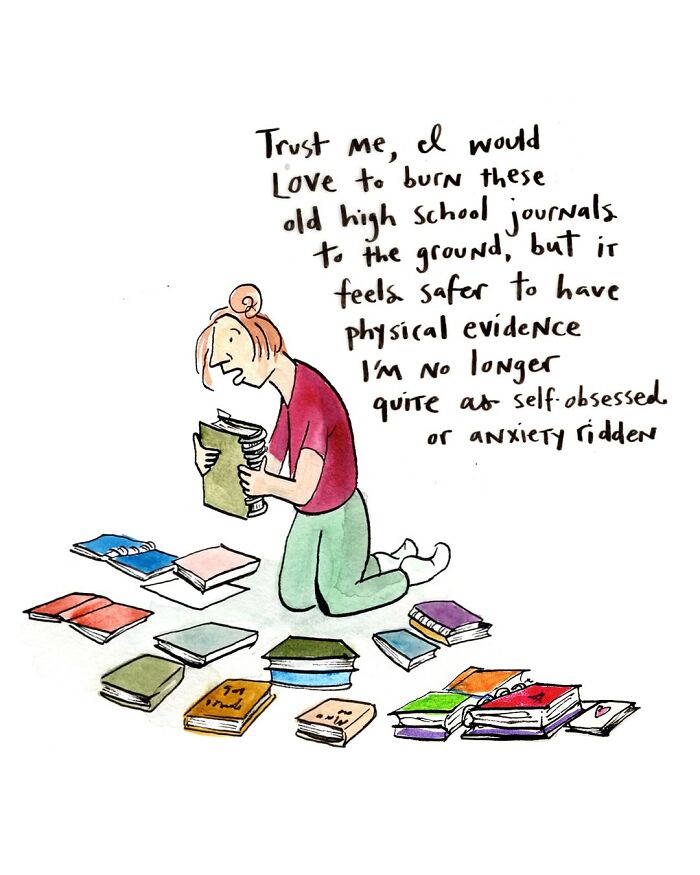 Trust me, I would
Love to burn these
old high school journals
to the ground, but it
feels safer to have
physical evidence
I'm no longer
quite as self-obsessed
or anxiety ridden